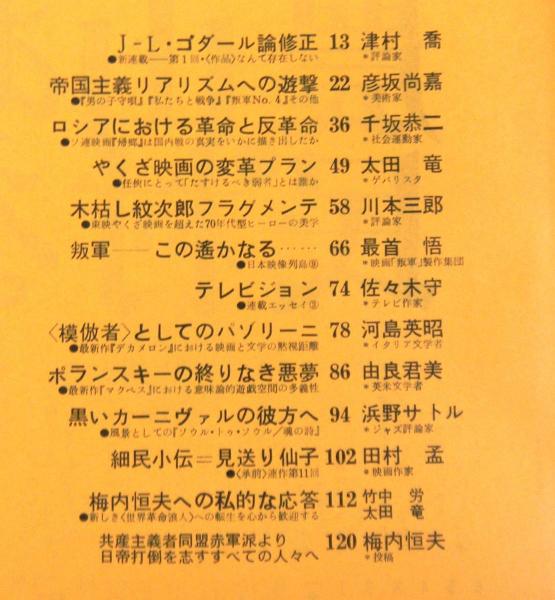 J-L・ゴダール論修正 13 津村 喬
●新連載——第1回・〈作品〉なんて存在しない *評論家
帝国主義リアリズムへの遊撃 22 彦坂尚嘉
●『男の子守唄』『私たちと戦争』『叛軍No.4』その他 *美術家
ロシアにおける革命と反革命 36 千坂恭二
●ソ連映画『帰郷』は国内戦の真実をいかに描き出したか *社会運動家
やくざ映画の変革プラン 49 太田 竜
●任侠にとって「たすけるべき弱者」とは誰か *ゲバリスタ
木枯し紋次郎フラグメンテ 58 川本三郎
●東映やくざ映画を超えた70年代型ヒーローの美学 *評論家
叛軍——この遙かなる…… 66 最首 悟
●日本映像列島⑨ *映画「叛軍」製作集団
テレビジョン 74 佐々木守
●連載エッセイ③ *テレビ作家
〈模倣者〉としてのパゾリーニ 78 河島英昭
●最新作『デカメロン』における映画と文学の黙視距離 *イタリア文学者
ポランスキーの終りなき悪夢 86 由良君美
●最新作『マクベス』における意味論的遊戯空間の多義性 *英米文学者
黒いカーニヴァルの彼方へ 94 浜野サトル
●風景としての『ソウル・トゥ・ソウル/魂の詩』 *ジャズ評論家
細民小伝=見送り仙子 102 田村 孟
●〈承前〉連作第11回 *映画作家
梅内恒夫への私的な応答 112 竹中 労
太田 竜
●新しき〈世界革命浪人〉への転生を心から歓迎する
共産主義者同盟赤軍派より 120 梅内恒夫
日帝打倒を志すすべての人々へ *投稿